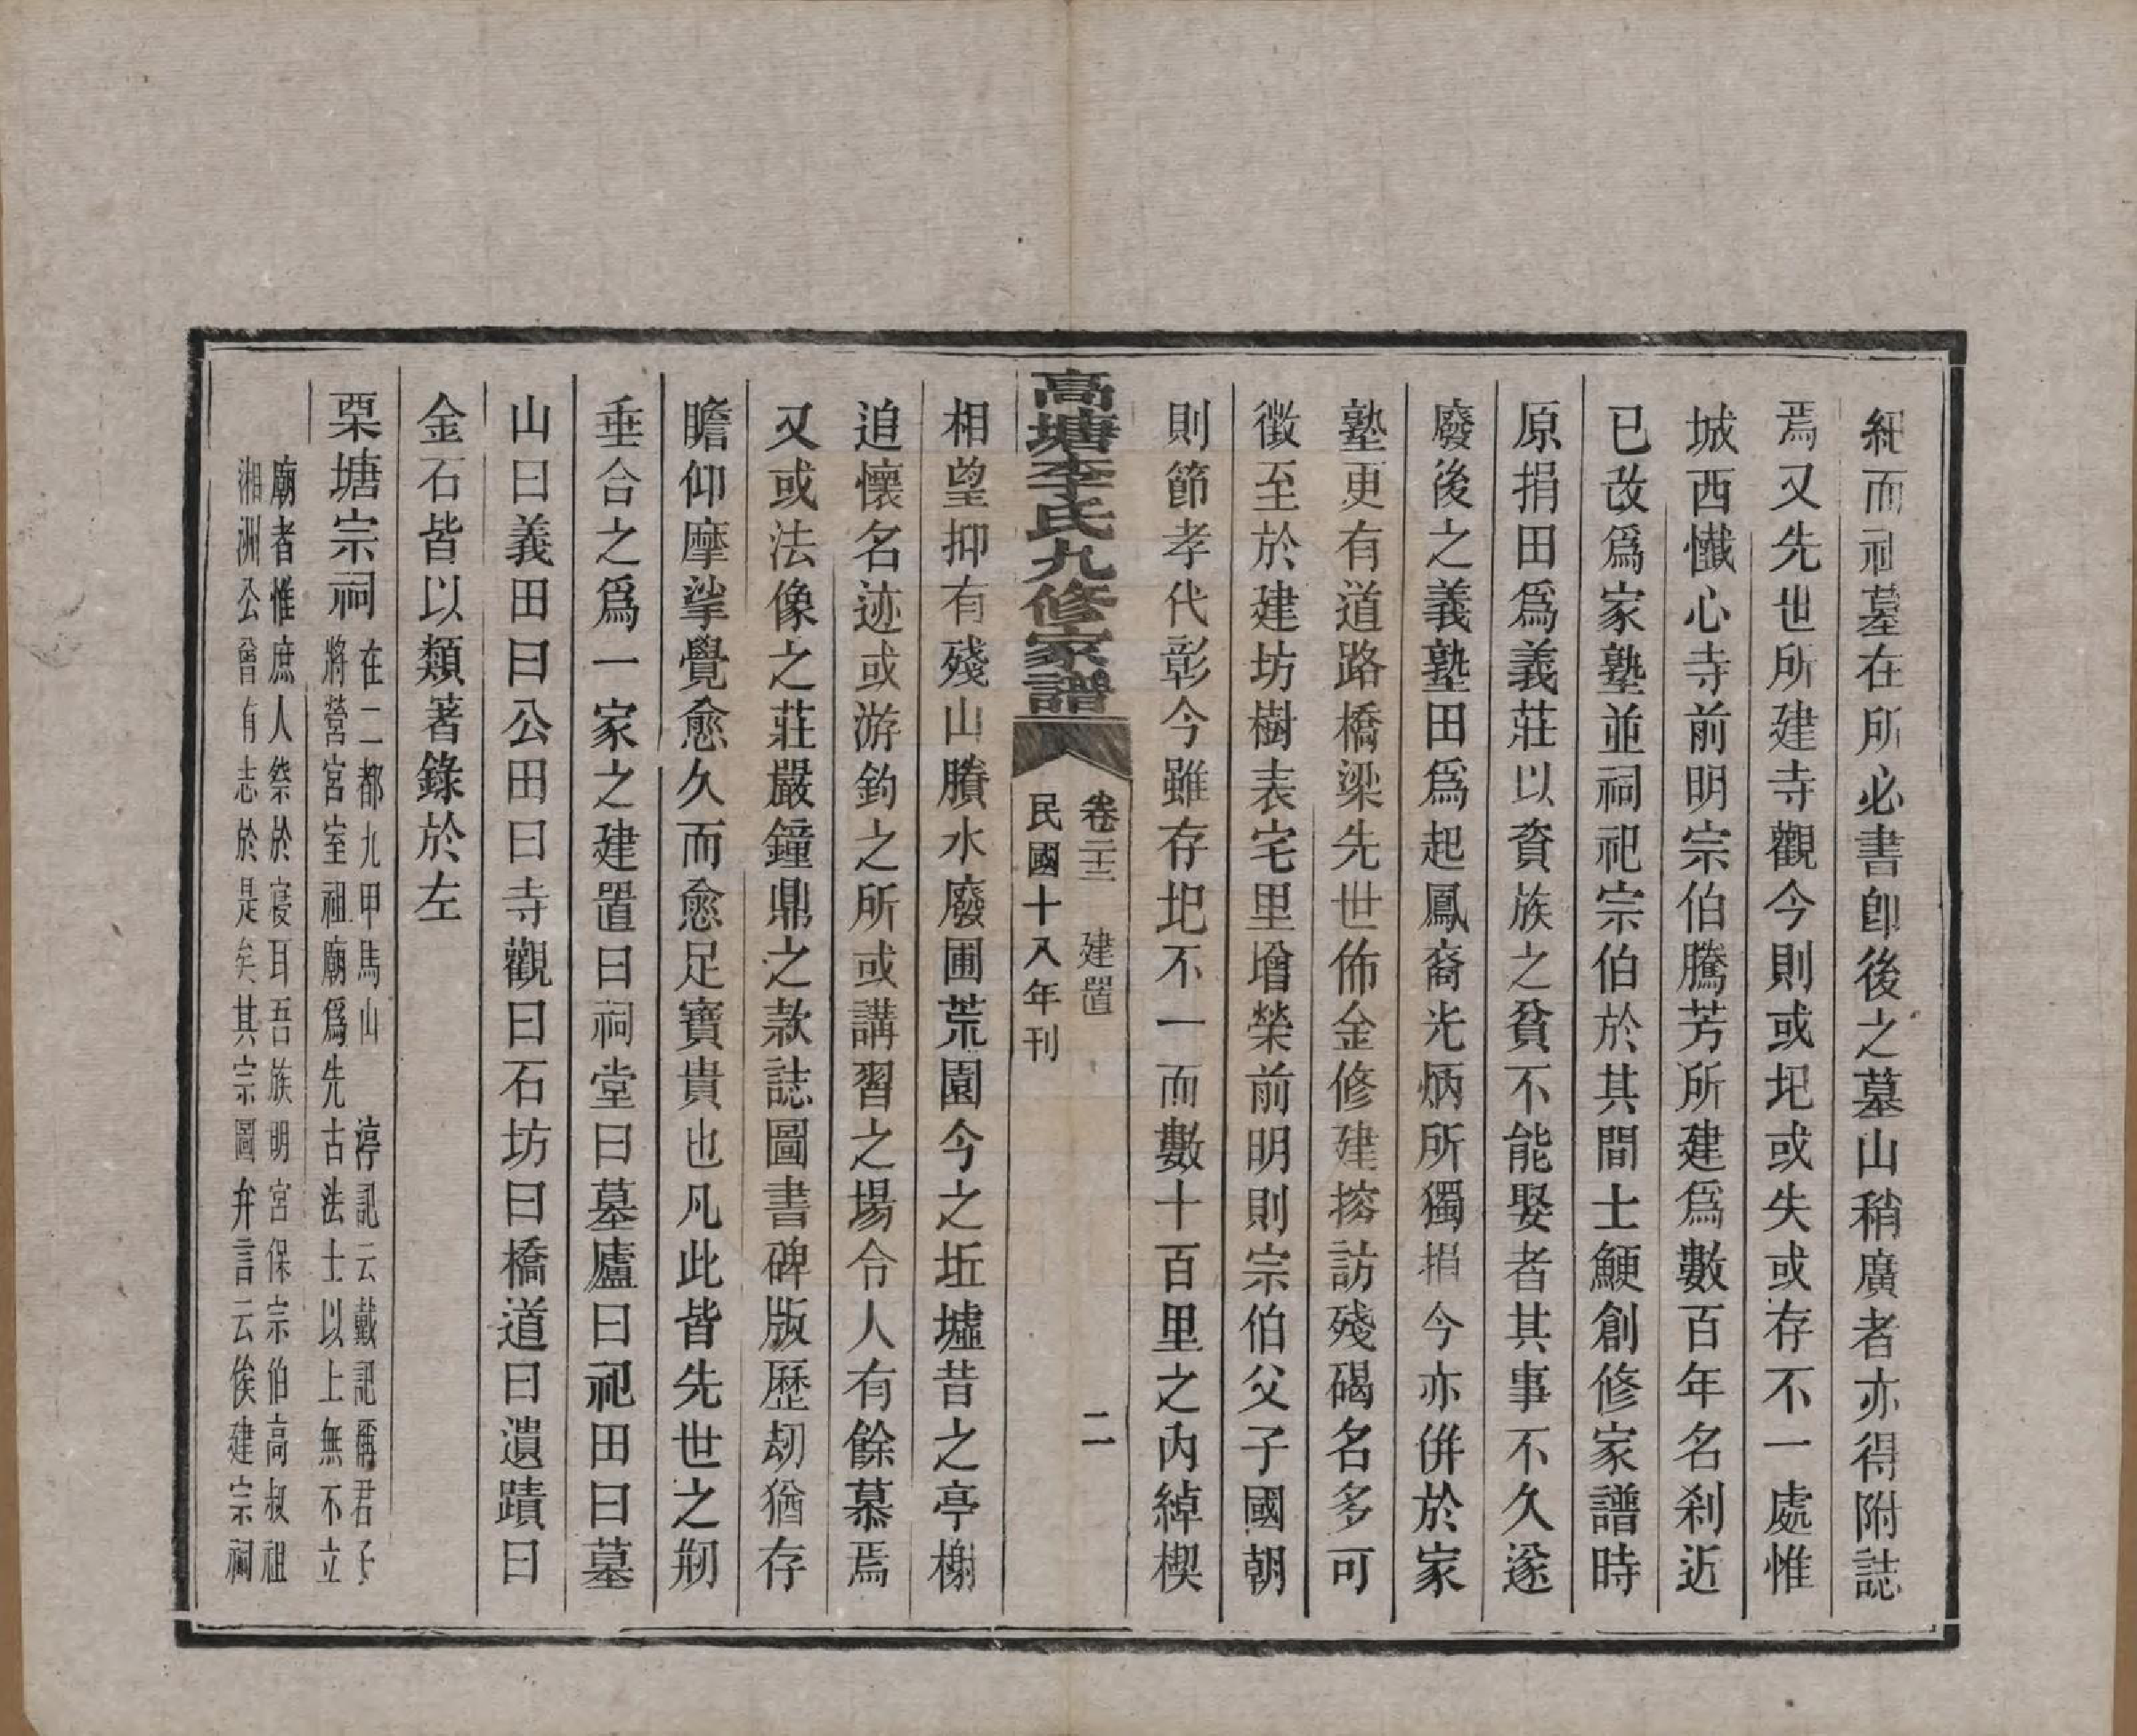 紐而祠墓在所必書卽後之墓山稍廣者亦得附誌
焉又先世所建寺觀今則或圯或失或存不一處惟
城西懺心寺前明宗伯騰芳所建爲數百年名刹近
已改爲家塾並祠祀宗伯於其間士鯁創修家譜時
原捐田爲義莊以資族之貧不能娶者其事不久遂
廢後之義塾田爲起鳳裔光炳所獨捐今亦併於家
塾更有道路橋梁先世佈金修建搽訪殘碣名多可
徵至於建坊樹表宅里增榮前明則宗伯父子國朝
則節孝代彰今雖存圯不一而數十百里之內綽楔
高塘李氏九修家譜
卷二十三 建置 二
民國十八年刊
相望抑有殘山賸水廢圃荒園今之坵墟昔之亭榭
追懷名迹或游釣之所或講習之場令人有餘慕焉
又或法像之莊嚴鐘鼎之款誌圖書碑版歷刧猶存
瞻仰摩挲覺愈久而愈足寶貴也凡此皆先世之剏
垂合之爲一家之建置曰祠堂曰墓廬曰祀田曰墓
山曰義田曰公田曰寺觀曰石坊曰橋道曰遺蹟曰
金石皆以類著錄於左
栗塘宗祠
在二都九甲馬山 淳記云戴記稱君子
將營宮室祖廟爲先古法士以上無不立
廟者惟庶人祭於寢耳吾族明宮保宗伯高叔祖
湘洲公曾有志於是矣其宗圖弁言云俟建宗祠